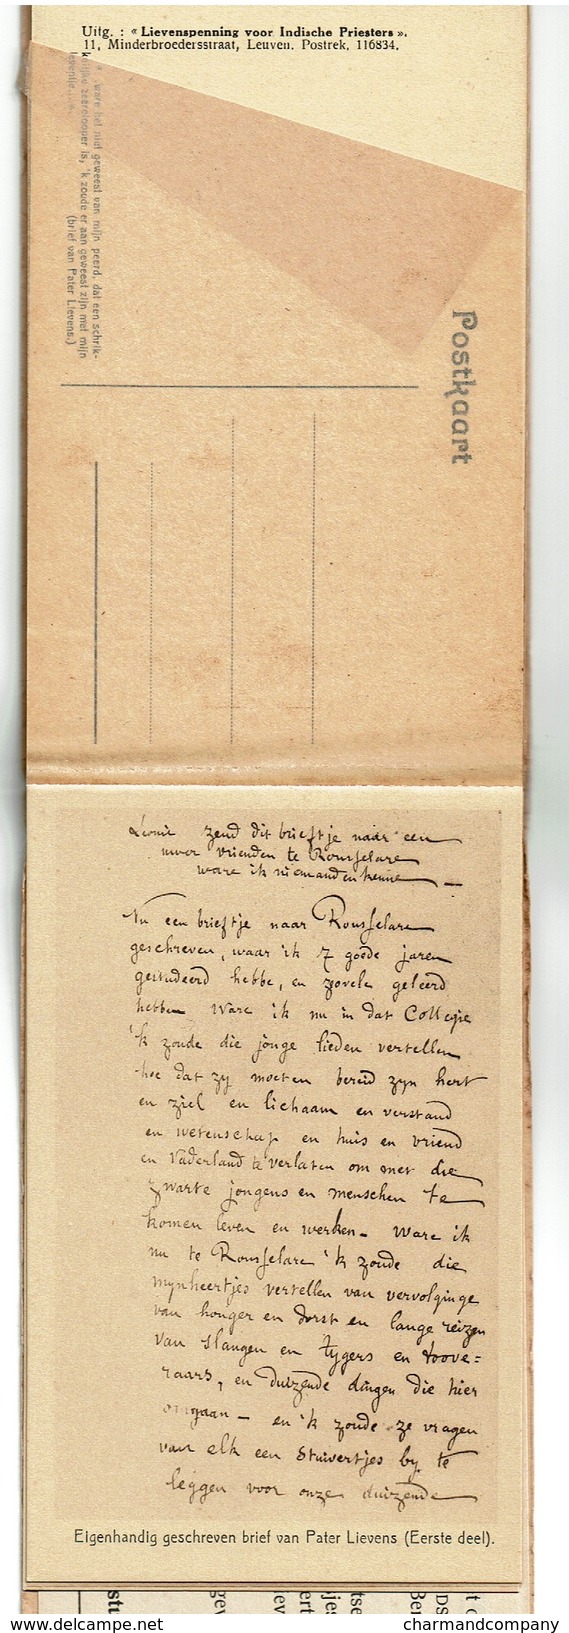 Uitg. : « Lievenspenning voor Indische Priesters ».
11, Minderbroedersstraat, Leuven. Postrek, 116834.
ware het niet geweest van mijn peerd, dat een schrik-
kelijke zeereloopeer is, 'k zoude er aan geweest zijn met mijn
(brief van Pater Lievens.)
Postkaart
Leonie zend dit brieftje naar een
uwer vrienden te Rousselare
ware ik niemanden kenne
Nu een brieftje naar Rousselare
geschreven, waar ik 7 goede jaren
gestudeerd hebbe, en zovele geleerd
hebben Ware ik nu in dat Collegie
'k zoude die jonge lieden vertellen
hoe dat zy moeten bereid zyn hert
en ziel en lichaam en verstand
en wetenschap en huis en vriend
en vaderland te verlaten om met die
zwarte jongens en menschen te
komen leven en werken - Ware ik
nu te Rousselare 'k zoude die
mynheertjes vertellen van vervolginge
van honger en dorst en lange reizen
van slangen en tygers en toove=
raars, en duizende dingen die hier
omgaan - en 'k zoude ze vragen
van elk een stuivertjes by te
leggen voor onze duizende
Eigenhandig geschreven brief van Pater Lievens (Eerste deel).
www.delcampe.net
charmandcompany